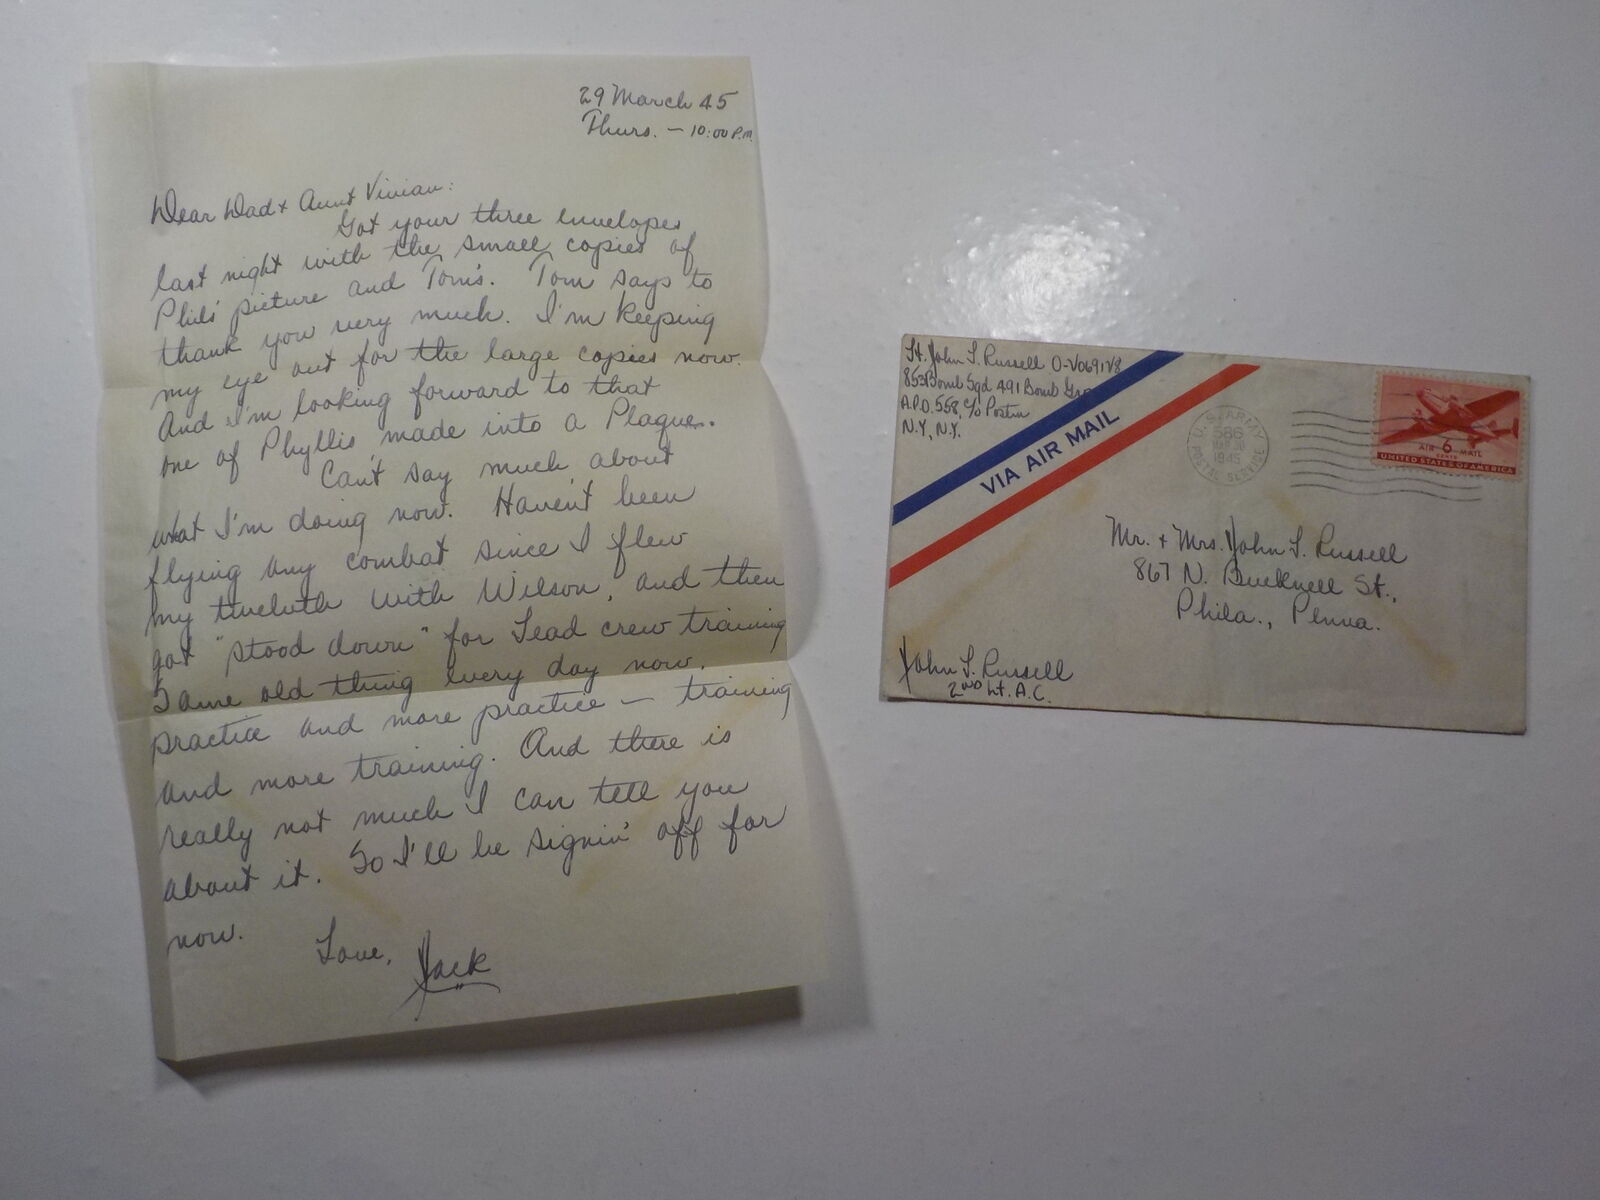 29 March 45
Thurs. — 10:00 P.M.
Dear Dad + Aunt Vivian:
Got your three envelopes
last night with the small copies of
Phil's picture and Tom's. Tom says to
thank you very much. I'm keeping
my eye out for the large copies now.
And I'm looking forward to that
one of Phyllis made into a Plaque.
Can't say much about
what I'm doing now. Haven't been
flying any combat since I flew
my twelvth with Wilson, and then
got "stood down" for Lead crew training
Same old thing every day now.
practice and more practice — training
and more training. And there is
really not much I can tell you
about it. So I'll be signin' off for
now.
Love, Jack
Lt. John L. Russell
853 Bomb Sqd 491 Bomb
A.P.O. 558, c/o Postm
N.Y., N.Y.
VIA AIR MAIL
U.S. ARMY
586
1945
POSTAL SERVICE
AIR 6 MAIL
CENTS
UNITED STATES OF AMERICA
Mr. + Mrs. John L. Russell
867 N. Bucknell St.,
Phila., Penna.
John L. Russell
2nd Lt. A.C.